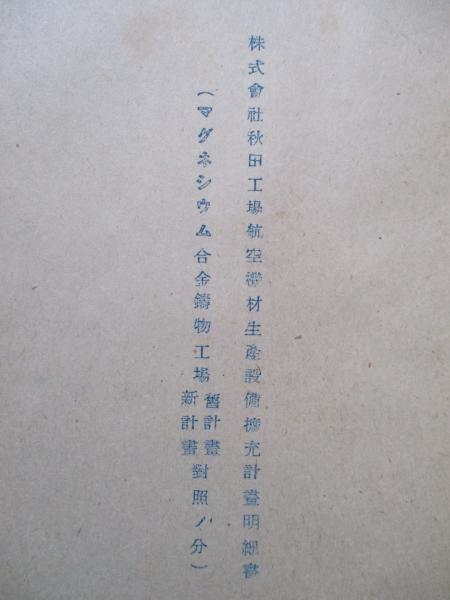 株式會社秋田工場航空機材生產設備擴充計畫明細書
(マグネシウム合金鑄物工場舊計畫新計畫對照ノ分)